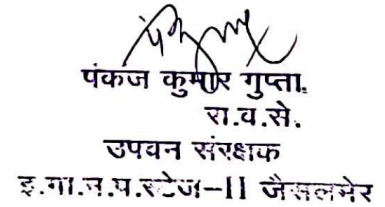 पंकज कुमार गुप्ता.
रा.व.से.
उपवन संरक्षक
इ.गा.न.प.स्टेज-II जैसलमेर